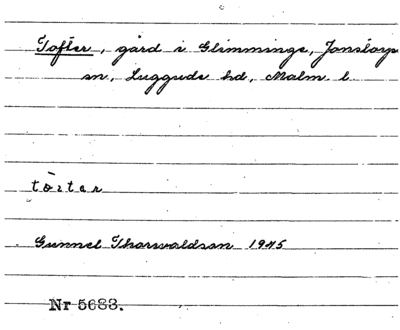 Tofter, gård i Glimminge, Jonstorps
sn, Luggude hd, Malm. l.
Gunnel Thorvaldson 1945
Nr 5683.